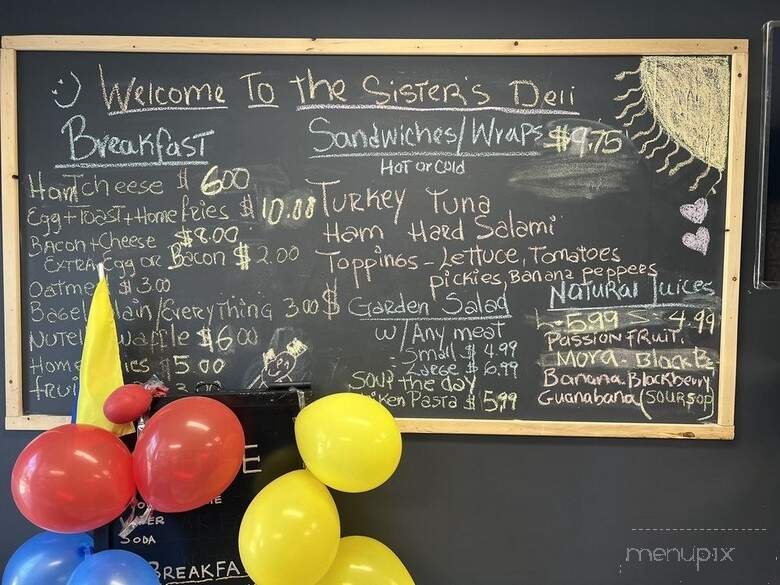 Welcome To the Sister's Deli
Breakfast
Ham+cheese $ 6.00
Egg+Toast+Home fries $ 10.00
Bacon+Cheese $8.00
Extra Egg or Bacon $ 2.00
$ 3.00
/Everything 3.00$
$6.00
Home 5.00
Sandwiches/Wraps $9.75
Hot or Cold
Turkey Tuna
Ham Hard Salami
Toppings - Lettuce, Tomatoes
pickies, Banana peppers
Garden Salad
w/Any meat
- Small $ 4.99
- Large $ 6.99
Soup the day
Pasta $ 5.99
Natural Juices
L-5.99 S-4.99
Passion Fruit.
Mora-BlackB
Banana.Blackberry
Guanabana/(soursop
E
Soda
Breakfa
menupix